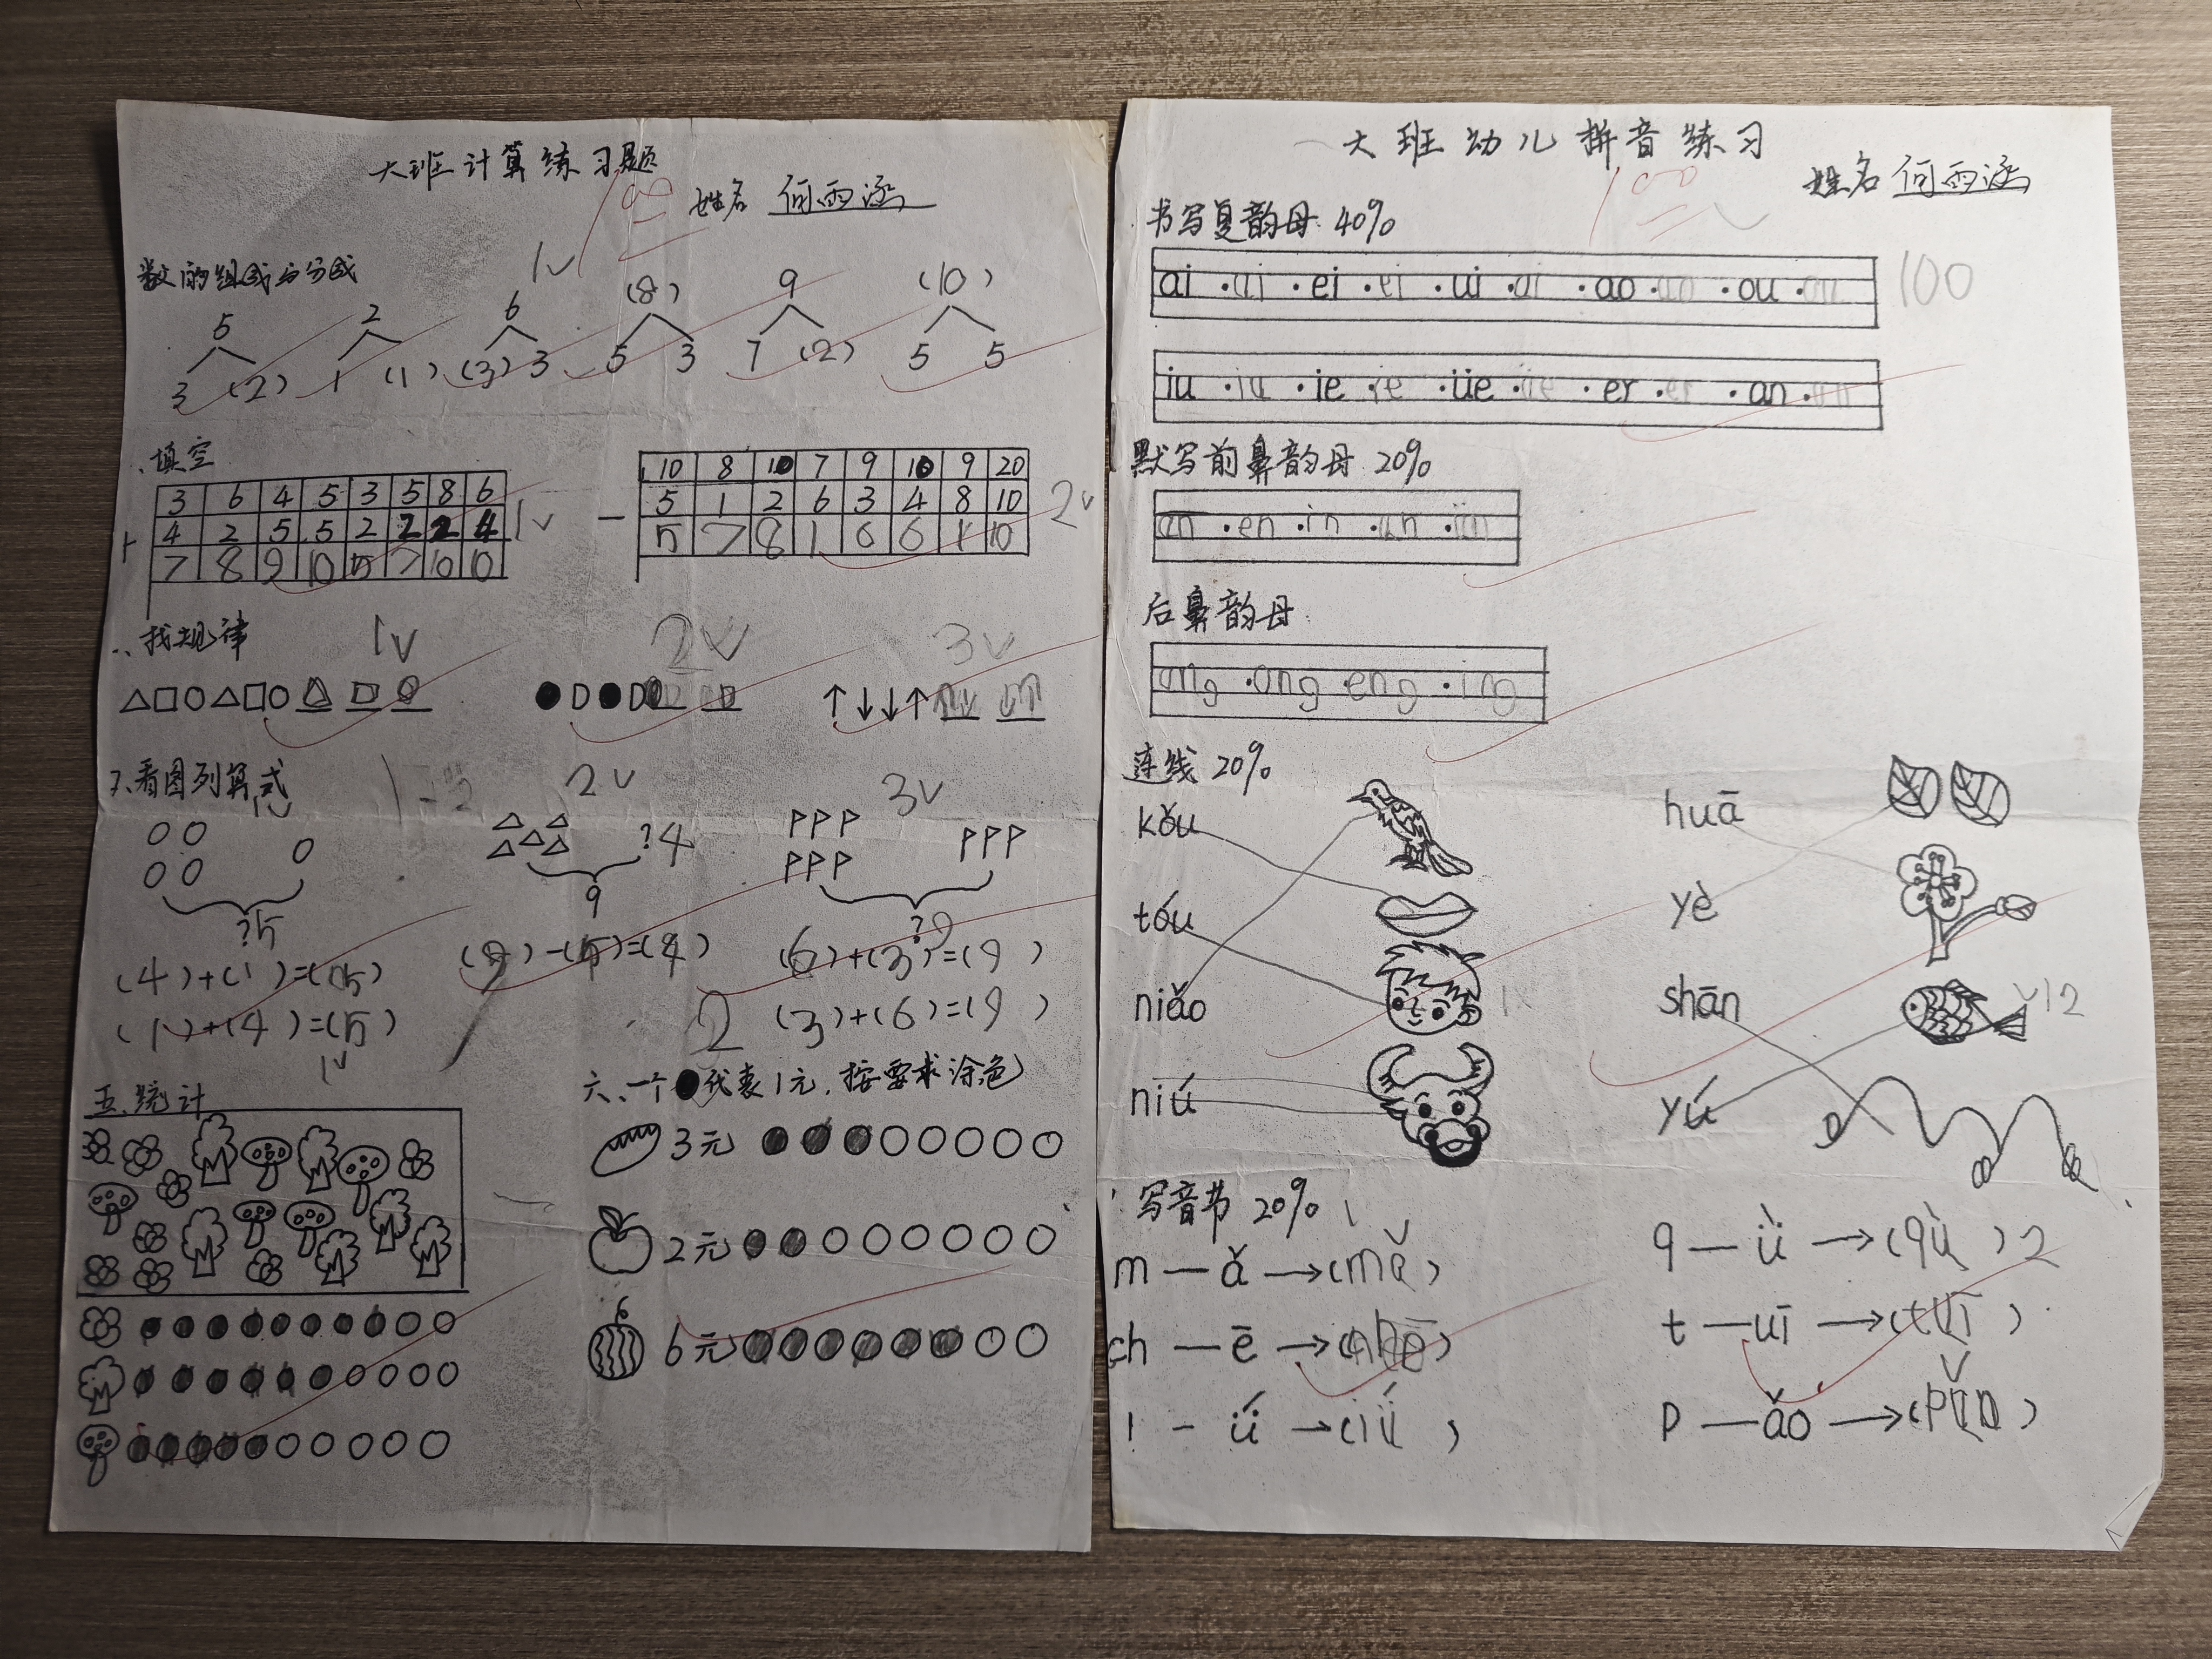 大班计算练习题
100
姓名 何雨涵
数的组成与分成
1
5 2 6 (8) 9 (10)
3 (2) 1 (1) (3) 3 5 3 7 (2) 5 5
、填空
3 6 4 5 3 5 8 6
+ 4 2 5 5 2 2 2 4
7 8 9 10 5 7 10 10
1
10 8 10 7 9 10 9 20
— 5 1 2 6 3 4 8 10
5 7 8 1 6 6 1 10
2
、找规律
1 2 3
↑↓↓↑
看图列算式
1 2 3
?5
?4
9
?9
(4)+(1)=(5)
(1)+(4)=(5)
(9)-(5)=(4)
(6)+(3)=(9)
2 (3)+(6)=(9)
1
五、统计
六、一个●代表1元,按要求涂色
3元
2元
6元
大班幼儿拼音练习
100
姓名 何雨涵
书写复韵母 40%
ai · ai · ei · ei · ui · ui · ao · ao · ou · ou
100
iu · iu · ie · ie · üe · üe · er · er · an · an
默写前鼻韵母 20%
an · en · in · un · ün
后鼻韵母
ang · ong · eng · ing
连线 20%
kǒu
tóu
niǎo
niú
1
huā
yè
shān
yú
12
写音节 20%
1
m — ǎ →(mǎ)
ch — ē →(chē)
l - ǘ →(lǘ)
q — ǜ →(qù) 2
t — uī →(tuī)
p — ǎo →(pǎo)